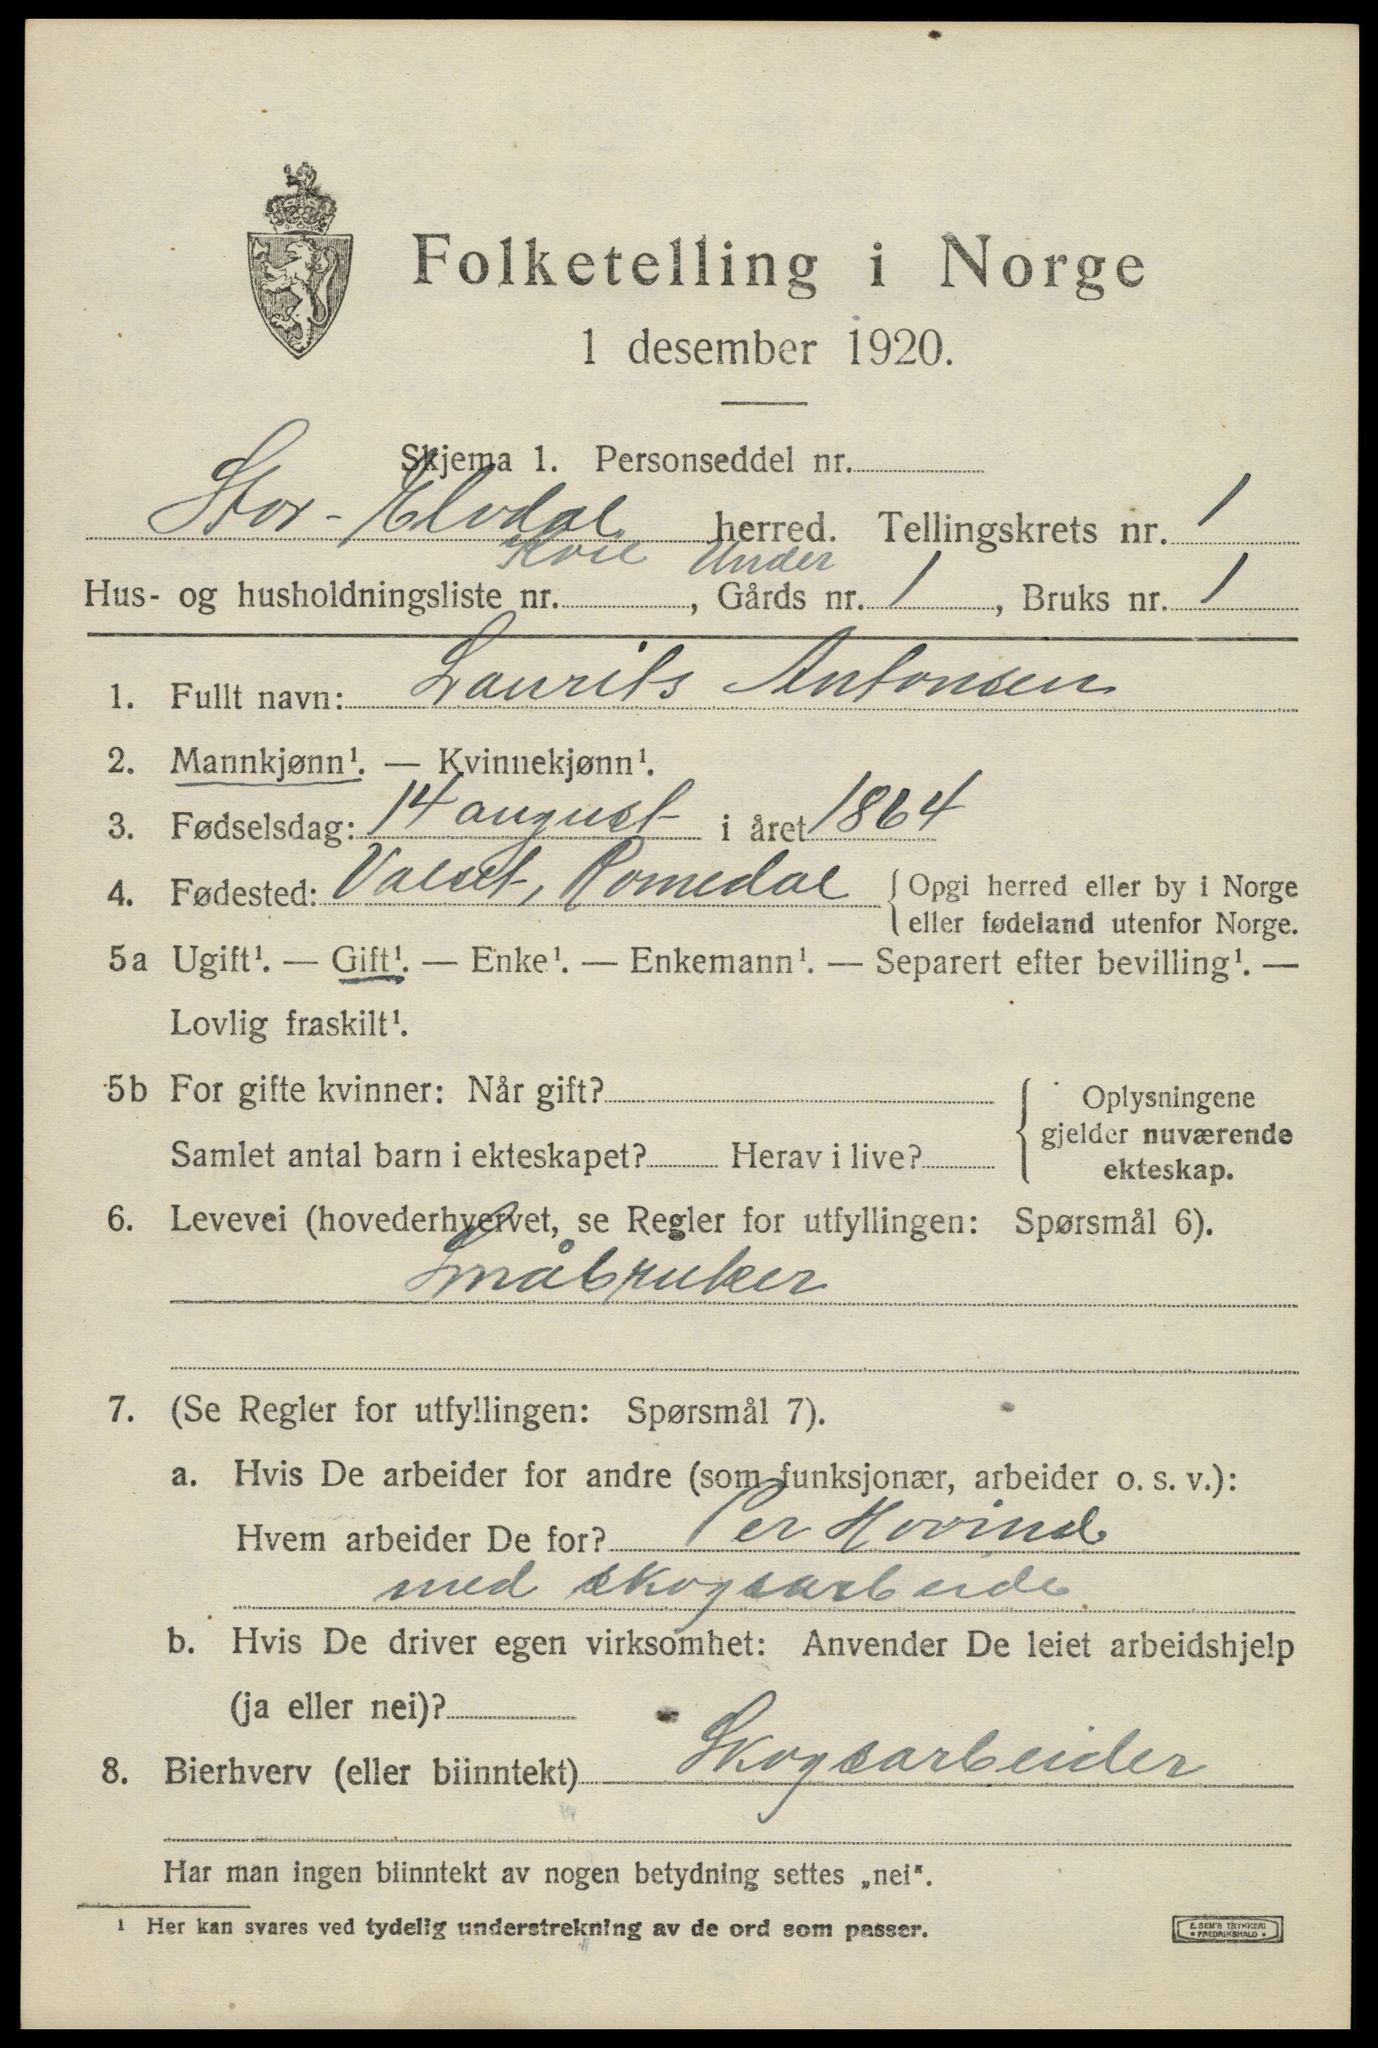 Folketelling i Norge
1 desember 1920.
Skjema 1. Personseddel nr.
Stor-Elvdal herred. Tellingskrets nr. 1
Kvie Under
Hus- og husholdningsliste nr. , Gårds nr. 1 , Bruks nr. 1
1. Fullt navn: Laurits Antonsen
2. Mannkjønn¹. — Kvinnekjønn¹.
3. Fødselsdag: 14 august i året 1864
4. Fødested: Valset, Romedal { Opgi herred eller by i Norge
eller fødeland utenfor Norge.
5a Ugift¹. — Gift¹. — Enke¹. — Enkemann¹. — Separert efter bevilling¹. —
Lovlig fraskilt¹.
5b For gifte kvinner: Når gift? { Oplysningene
gjelder nuværende
Samlet antal barn i ekteskapet? Herav i live?
ekteskap.
6. Levevei (hovederhvervet, se Regler for utfyllingen: Spørsmål 6).
Småbruker
7. (Se Regler for utfyllingen: Spørsmål 7).
a. Hvis De arbeider for andre (som funksjonær, arbeider o. s. v.):
Hvem arbeider De for? Per Hovind
med skogsarbeide
b. Hvis De driver egen virksomhet: Anvender De leiet arbeidshjelp
(ja eller nei)?
8. Bierhverv (eller biinntekt) Skogsarbeider
Har man ingen biinntekt av nogen betydning settes „nei".
¹ Her kan svares ved tydelig understrekning av de ord som passer.
E. SEM'S TRYKKERI
* FREDRIKSHALD *